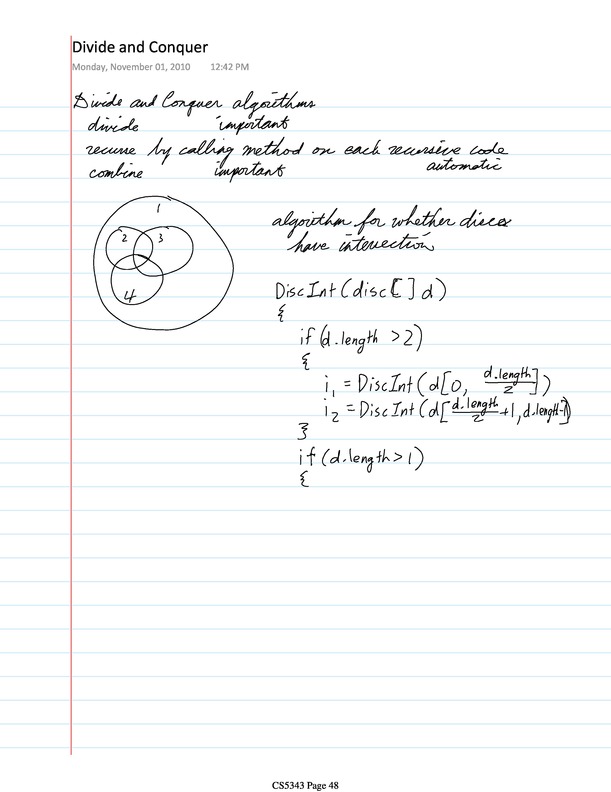 Divide and Conquer
Monday, November 01, 2010 12:42 PM
Divide and Conquer algorithms
divide important
recurse by calling method on each recursive code
combine important automatic
1
2 3
4
algorithm for whether discs
have intersection
DiscInt(disc[] d)
{
if(d.length >2)
{
i₁ = DiscInt(d[0, d.length/2])
i₂ = DiscInt(d[d.length/2+1, d.length-1])
}
if(d.length>1)
{
CS5343 Page 48